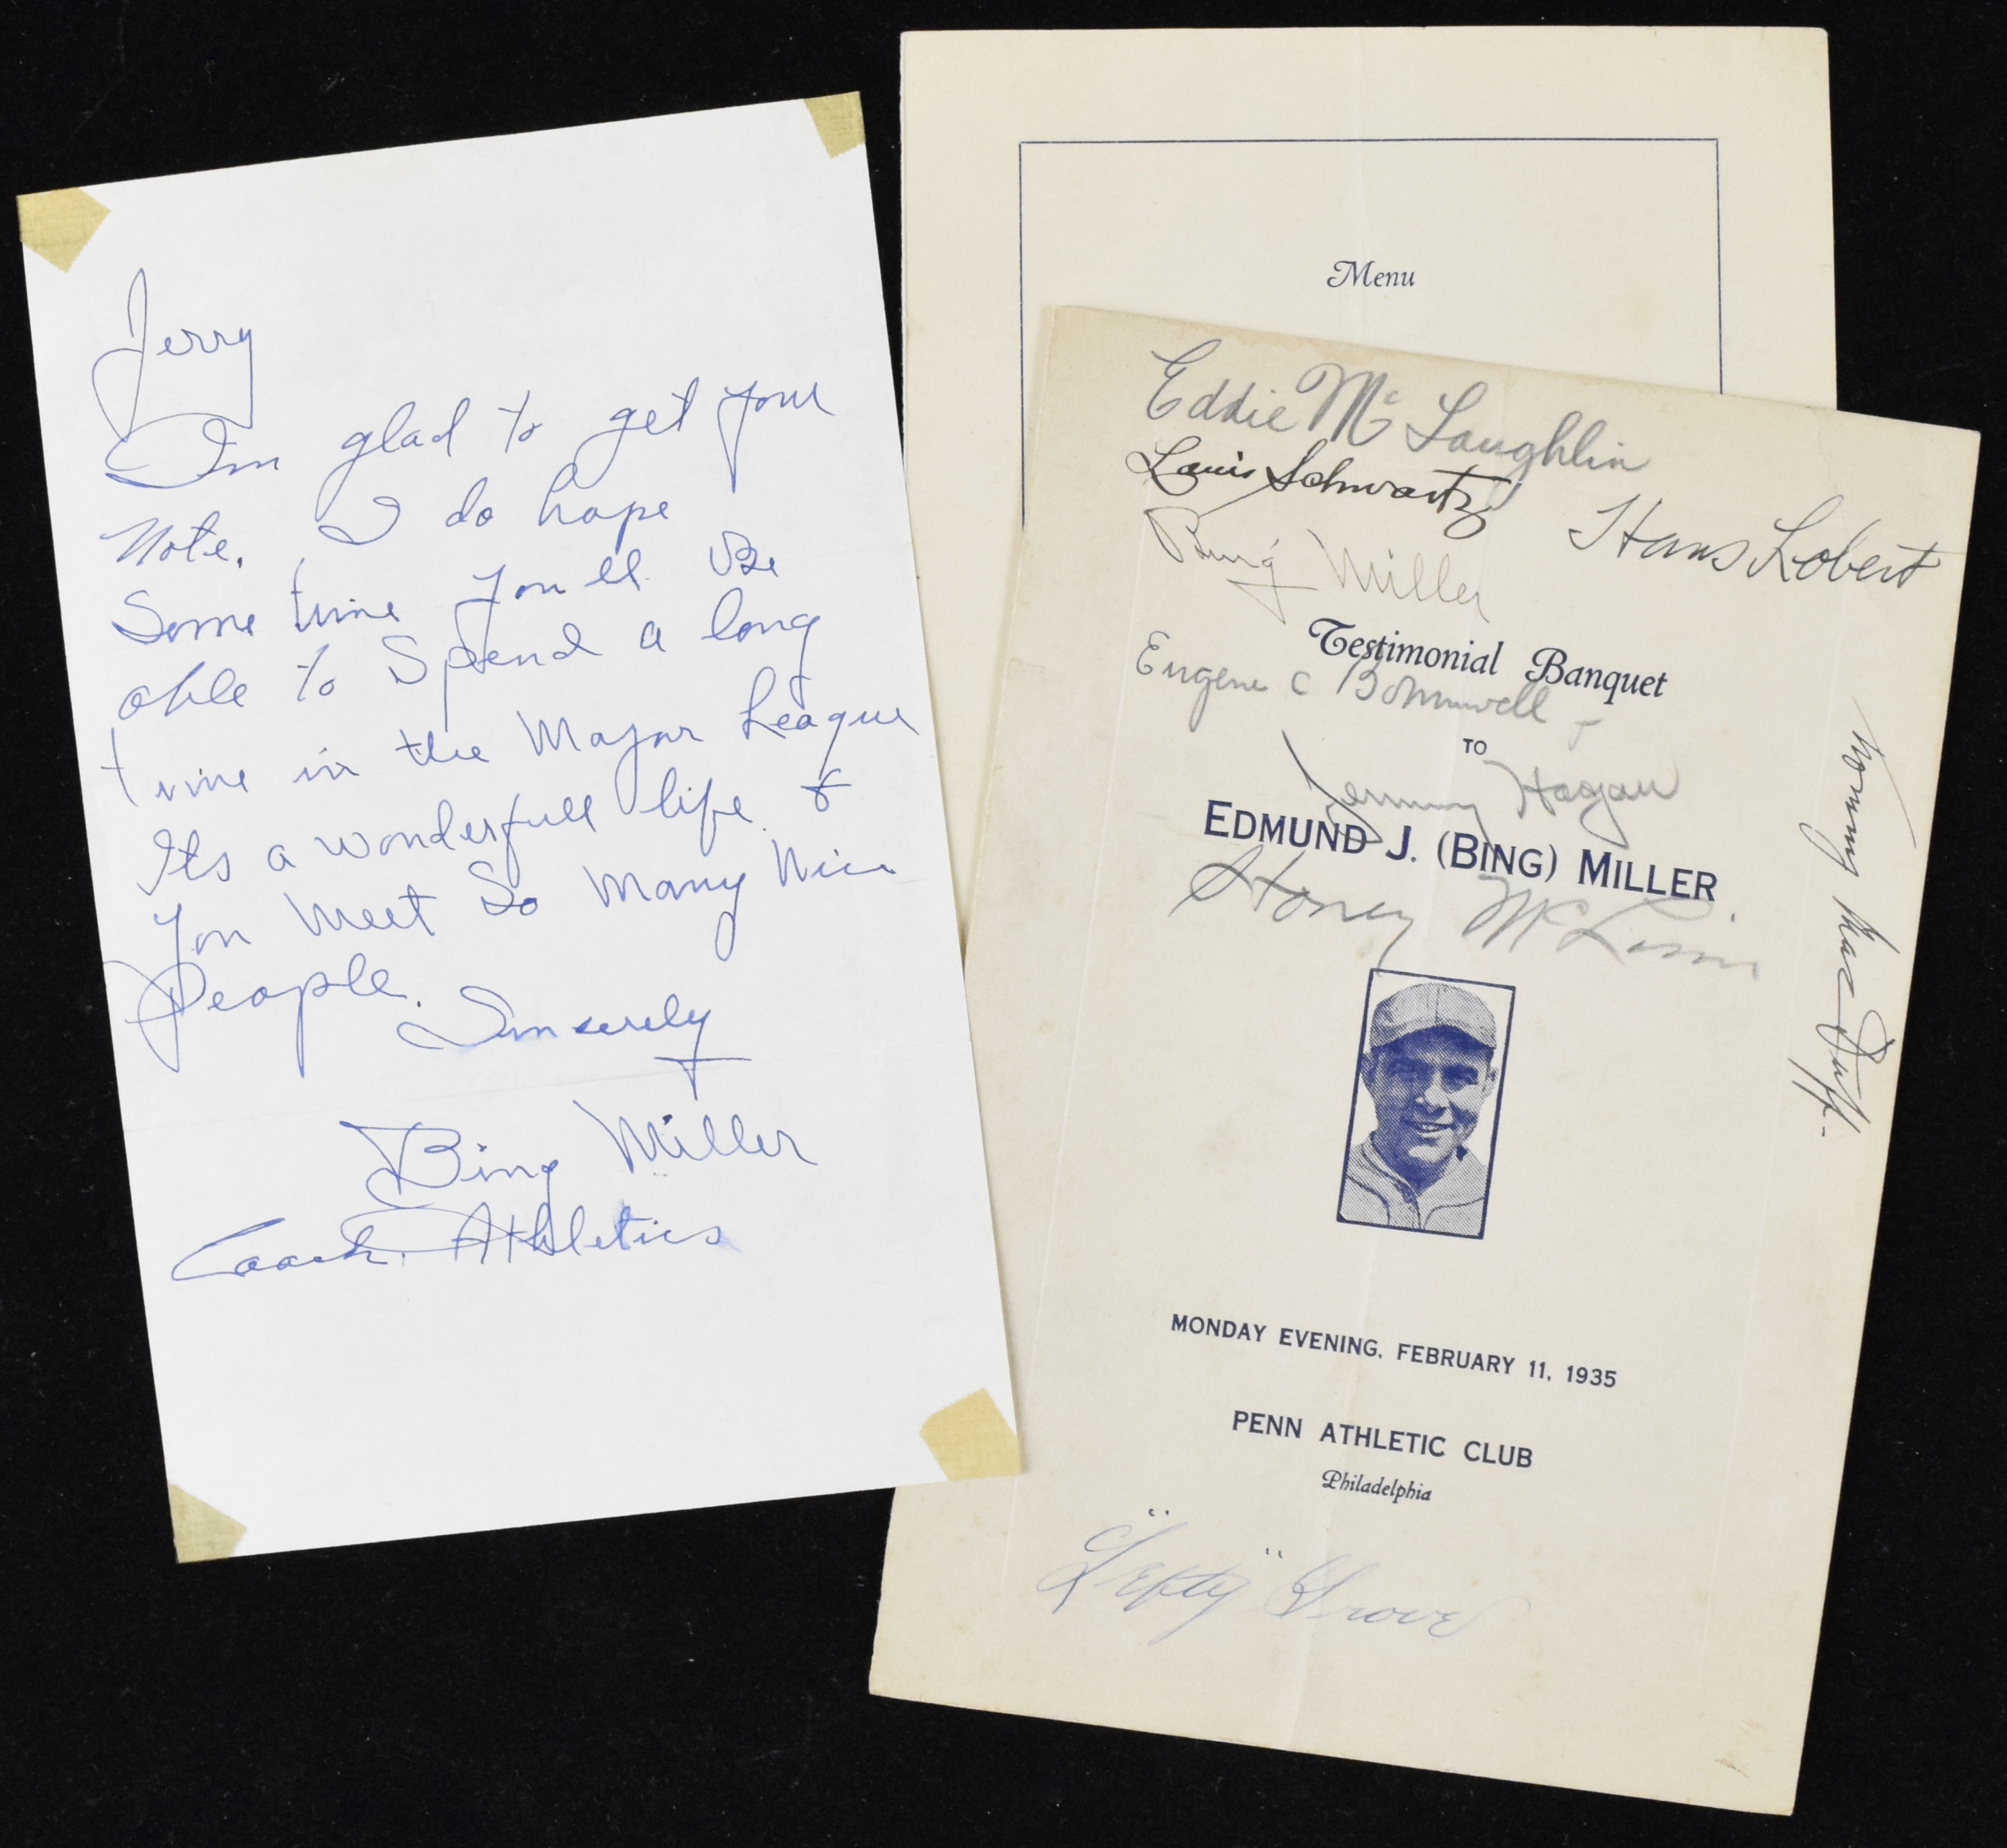 Jerry
Im glad to get your
Note. I do hope
Some time you'll be
able to Spend a long
time in the Major League
Its a wonderfull life &
You meet So Many Nice
People.
Sincerely
Bing Miller
Coach. Athletics
Menu
Eddie Mc Laughlin
Louis Schwartz
Hans Lobert
Bing Miller
Testimonial Banquet
Eugene C
TO
Jimmy Hagan
EDMUND J. (BING) MILLER
Mc
MONDAY EVENING, FEBRUARY 11, 1935
PENN ATHLETIC CLUB
Philadelphia
"Lefty" Grove
Mac Duff.